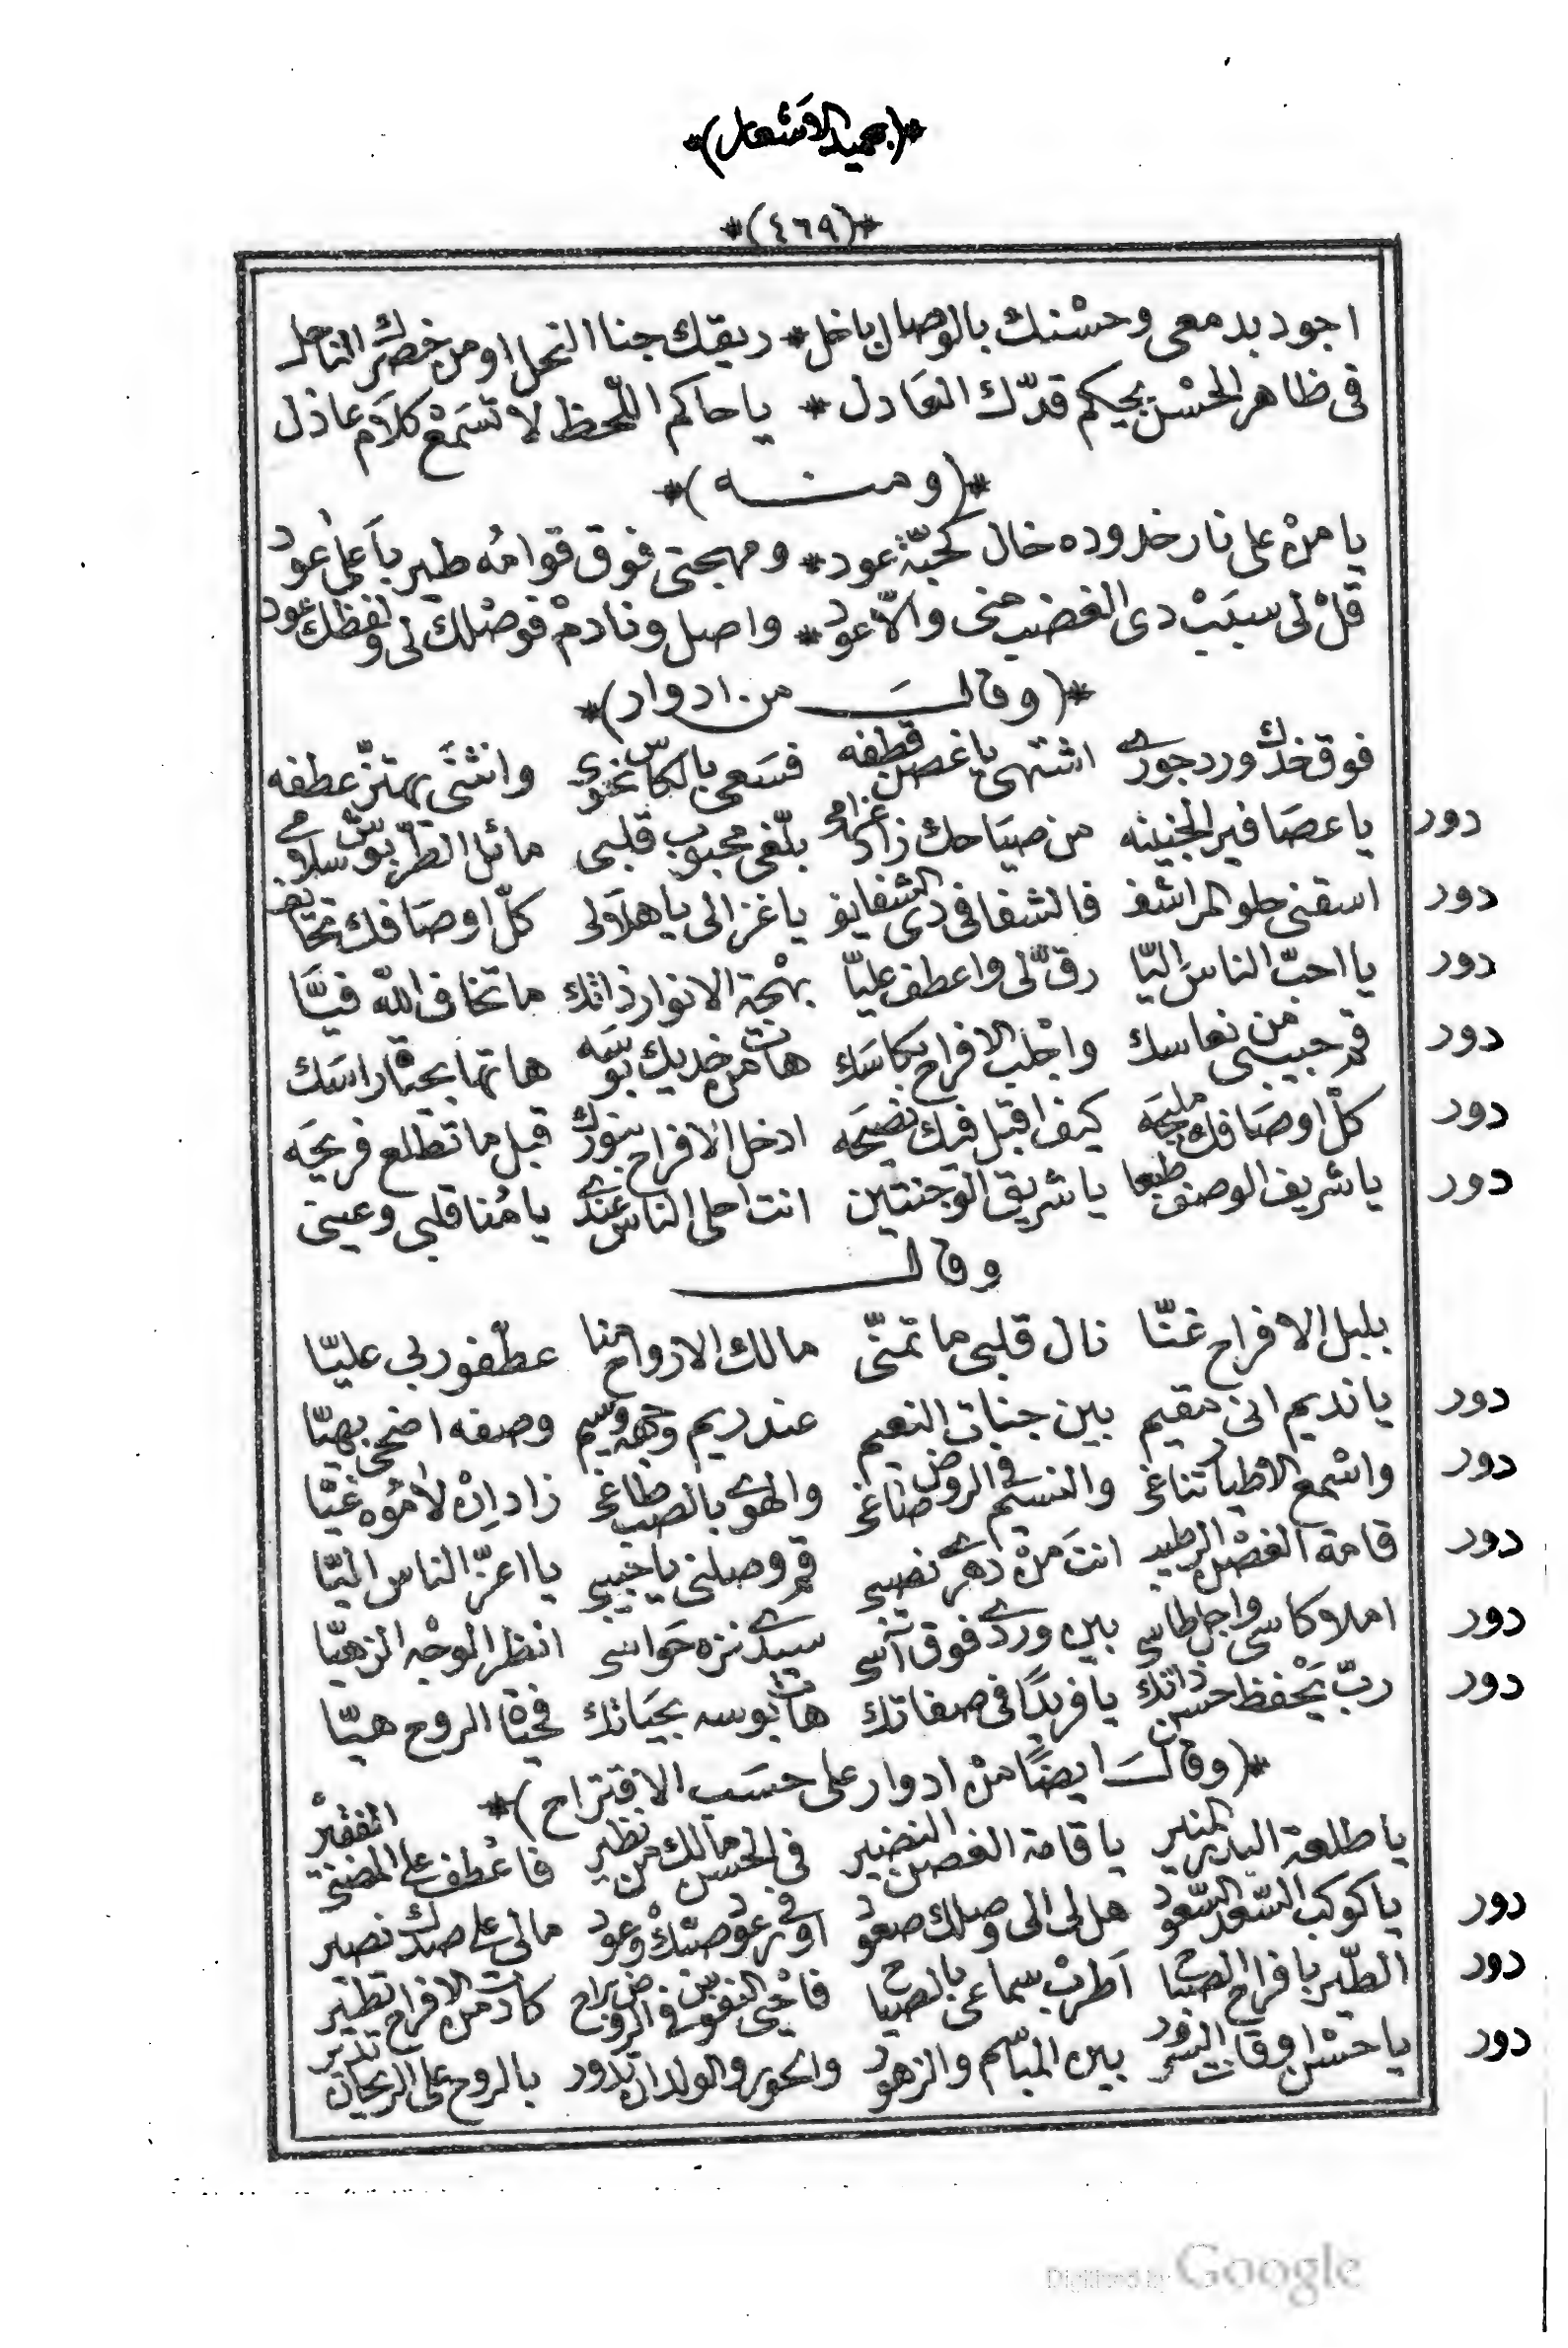 *(بحميد الاشعار)*
*(٤٦٩)*
اجود بدمعى وحسْنك بالوصال باخل * ريقك جنا النحل او من خصرك الناحل
فى ظاهر الحسْن يحكم قدّك العَادل * ياحاكم اللّحظ لا تسَمعْ كلاَم عاذل
*(ومنه)*
يامنْ على نار خدوده خال كحبّة عود * ومهجتى فوق قوامُه طير باَعلى عود
قلْ لى سبَبْ دى الغضب منى والاّ عود * واصل ونادمْ فوصْلك لى ولفظك عود
*(وقالَ من ادوار)*
فوق خدك ورد جورى اشتهى ياغصن قطفه فسَعى بالكاس نحوى وانثنَى يهتزّ عطفه
دور ياعصَافير الجنينه من صيَاحك زاد غرامى بلّغى محبوب قلبى مائل الطرّبوش سلامى
دور اسقنى حلو المراشف فالشفا فى دى الشفايف ياغزالى ياهلاَلى كلّ اوصَافك تحَايف
دور يااحبّ الناسَ اليّا رقّ لى واعطف عليّا بهْجة الانوار ذاتك ما تخاف اللّه فيَّا
دور قم حبيبى من نعاسك واجْلب الافراح بكاسَك هات من خديك بَوسَه هاتها بحيَاة راسَك
دور كلّ اوصَافك مليحَه كيف اقبل فيك نصيحَه ادخل الافراح بنورك قبل ما تطلع فريحَه
دور ياشريف الوصف طبعا ياشريق الوجنتين انت احلى الناس عندى يامُنا قلبى وعينى
وقال
بلبل الافراح غنّا نال قلبى ما تمنّى مالك الارواح منا عطّفو ربى عليّا
دور يانديم انى مقيم بين جنات النعيم عند ريم وجهه وسيم وصفه اضحى بهيّا
دور واسْمع الاطيار تناغى والنسيم فى الروض صاغى والهوى بالصب طاغى زاد اِنْ لاَمُوه غيّا
دور قامة الغصْن الرطيب انتَ منْ دهرى نصيبى قم وصلنى ياحَبيبى يااعزّ الناس اليّا
دور املا كاسى واجل طاسى بين وردى فوق آسى سيدى نزه حَواسى انظر الوجْه الزهيّا
دور ربّ يَحْفظ حسن ذاتك يافريدًا فى صفاتك هات بوسه بحيَاتك فحيَاة الروح هيّا
*(وقالَ ايضًا منْ ادوار على حسَب الاقتراح)*
ياطلعة البدر المنير ياقامة الغصن النضير فى الحسن مالك من نظير فاعْطف على المضنى الفقيرْ
دور ياكوكب السّعد السّعود هل لى الى وصلك صعود اوفى وعود صبّكْ وعود مالى على صدك نصير
دور الطّير بافراح الصبَاح اَطربْ سماعى بالصيَاح فاحْيى النفوس بين روض وراح كادت من الافراح تطير
دور ياحسْن اوقات السّرور بين المباسم والزهور والحور والولدان تدور بالروح على الريحان تدير
Digitized by Google